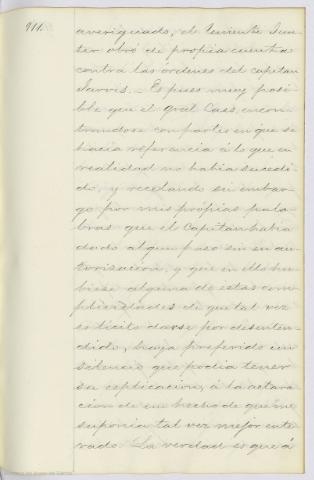 911.
averiguado, el teniente Hun-
ter obró de propia cuenta
contra las órdenes del capitan
Jarvis. – Es pues muy posi-
ble que el Gral Cass, encon-
trandose con partes en que se
hacia referencia á lo que en
realidad no habia sucedi-
do, y recelando sin embar-
go por mis propias pala-
bras que el Capitan habia
dado algun paso sin su au-
torizacion, y que en ello hu-
biese alguna de estas com-
plicidades de que tal vez
es lícito darse por desenten-
dido, haya preferido un
silencio que podia tener
su esplicacion, á la aclara-
cion de un hecho de que me
suponia tal vez mejor ente-
rado. La verdad es que á